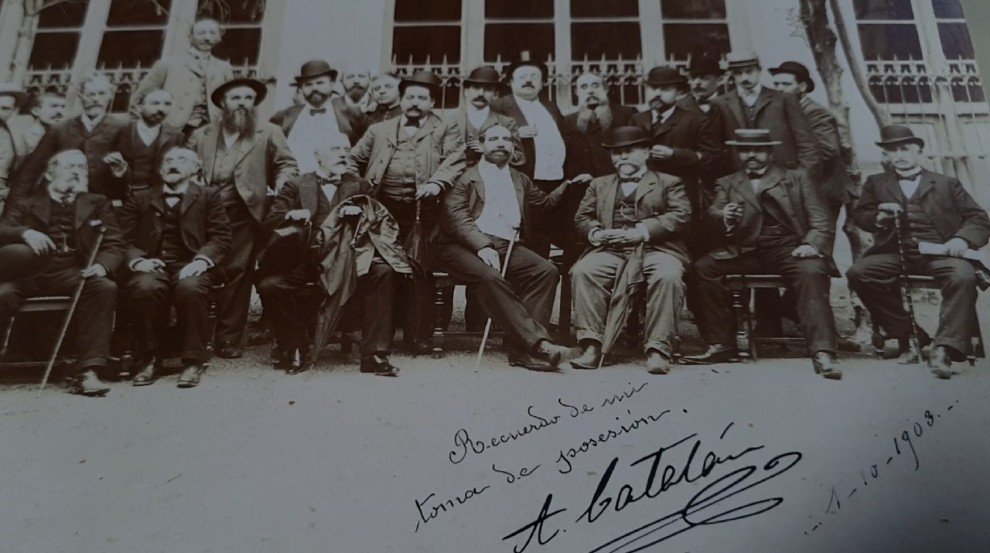 Recuerdo de mi
toma de posesión.
A. Catalán
1-10-1903